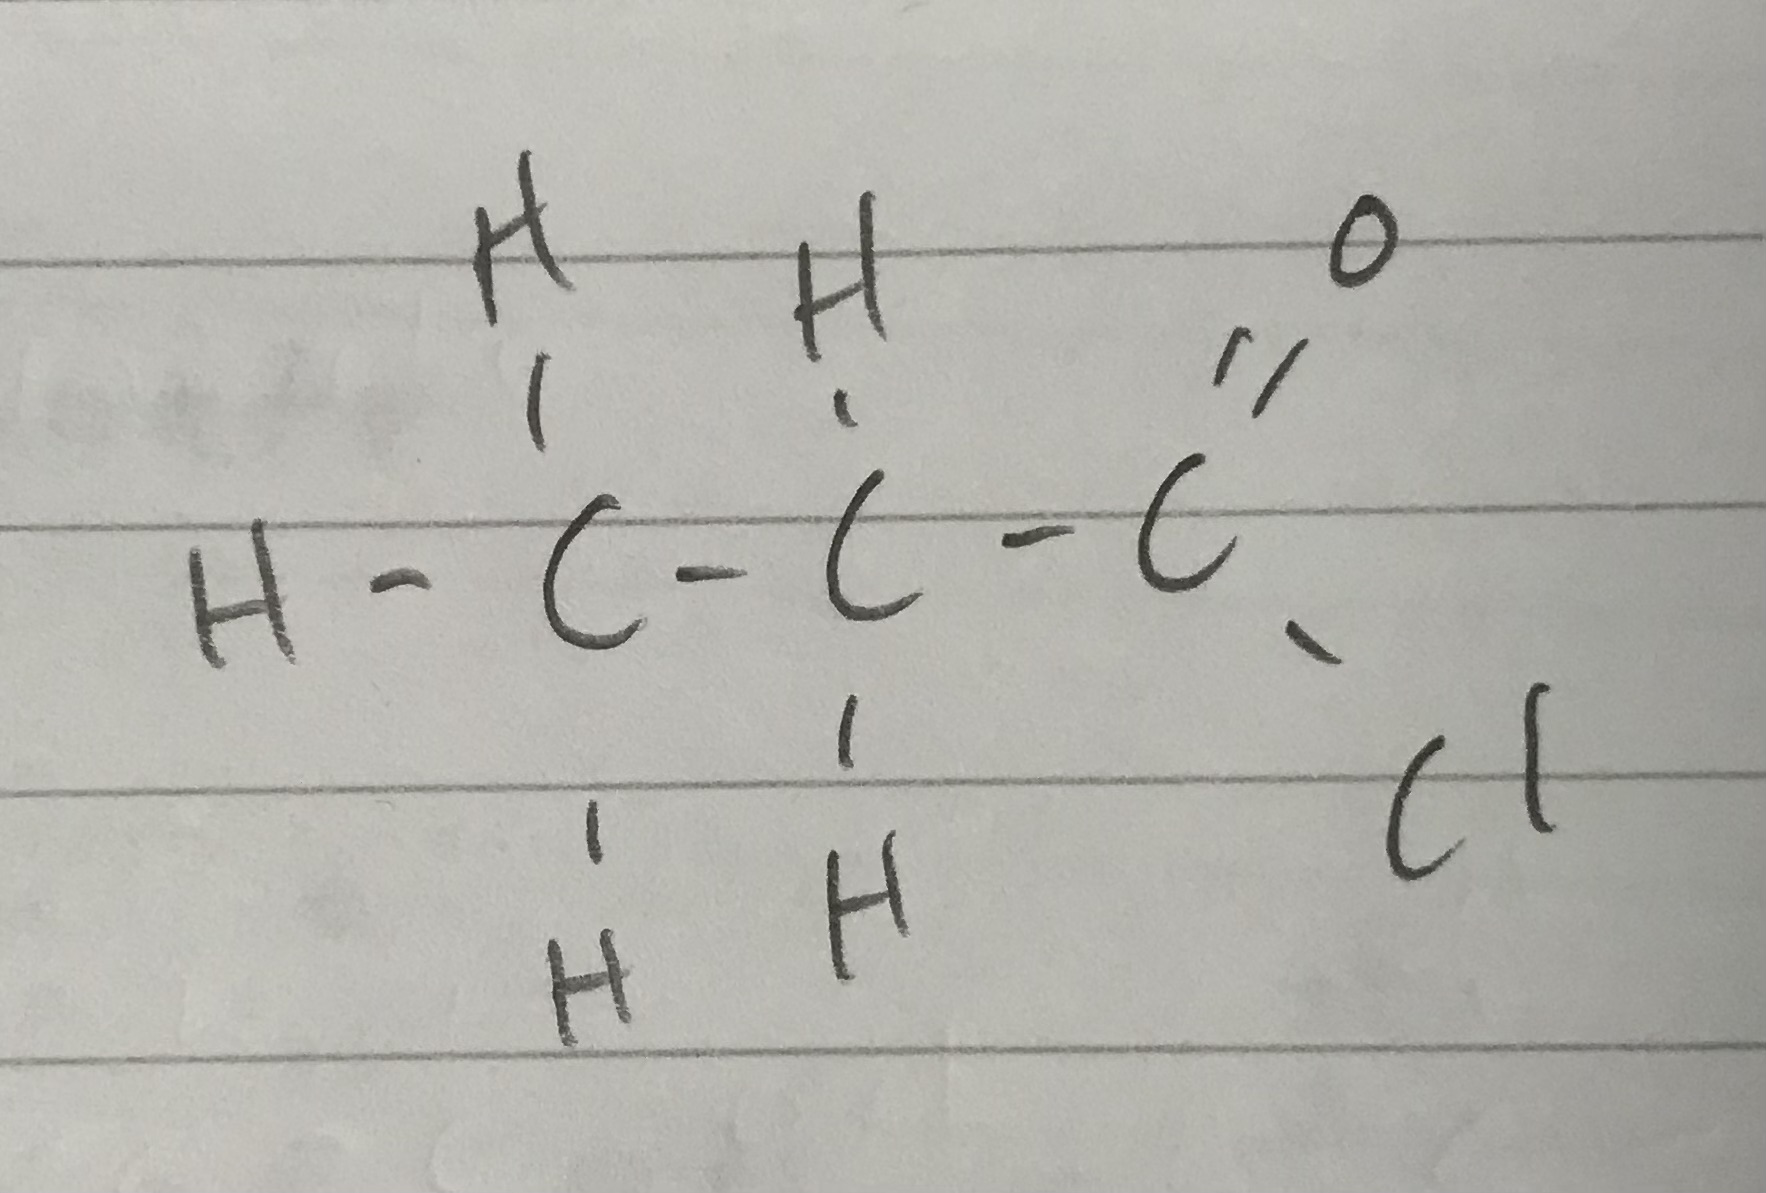 H H O
H - C - C - C
Cl
H H